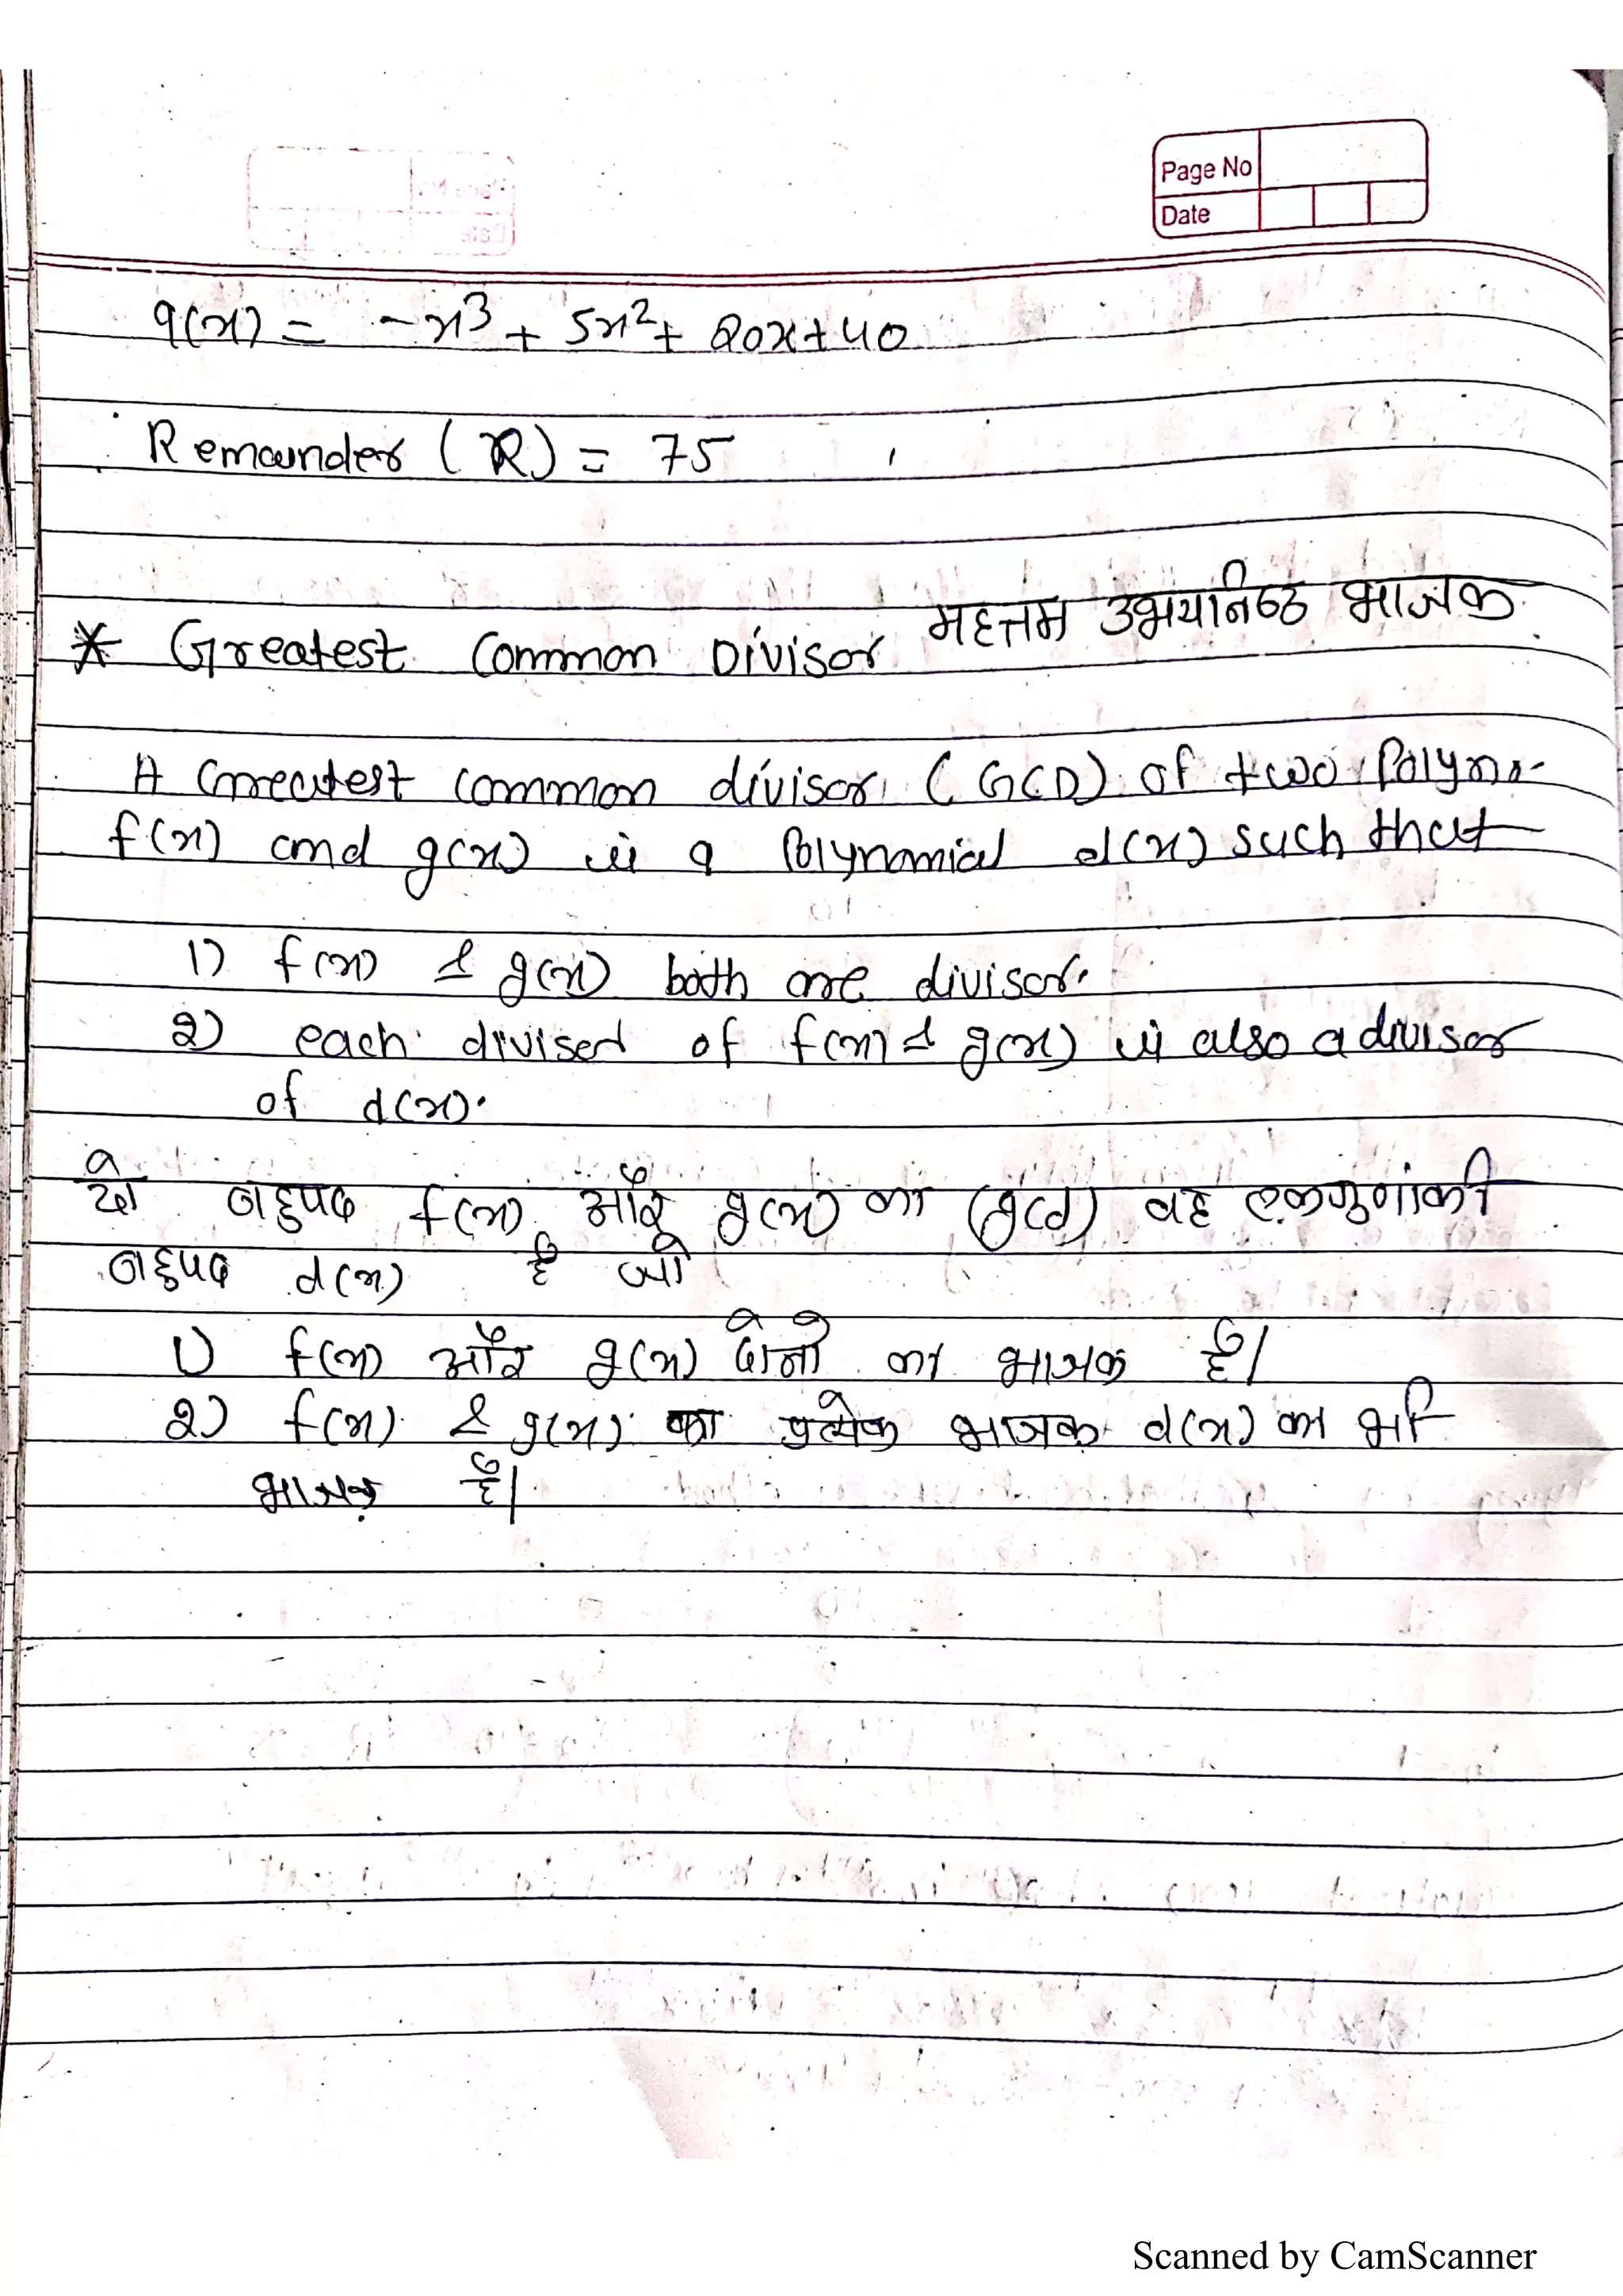 Page No
Date
q(x) = -x³ + 5x² + 20x + 40
Remainder (R) = 75
महत्तम उभयनिष्ठ भाजक
* Greatest Common Divisor
A Greatest common divisor (GCD) of two Polyno-
f(x) and g(x) is a Polynomial d(x) such that
1) f(x) & g(x) both are divisor.
2) each divised of f(x) & g(x) is also a divisor
of d(x).
दो बहुपद f(x) और g(x) का (gcd) वह एकगुणांकी
बहुपद d(x) है जो
1) f(x) और g(x) दोनो का भाजक है।
2) f(x) & g(x) का प्रत्येक भाजक d(x) का भी
भाजक है।
Scanned by CamScanner